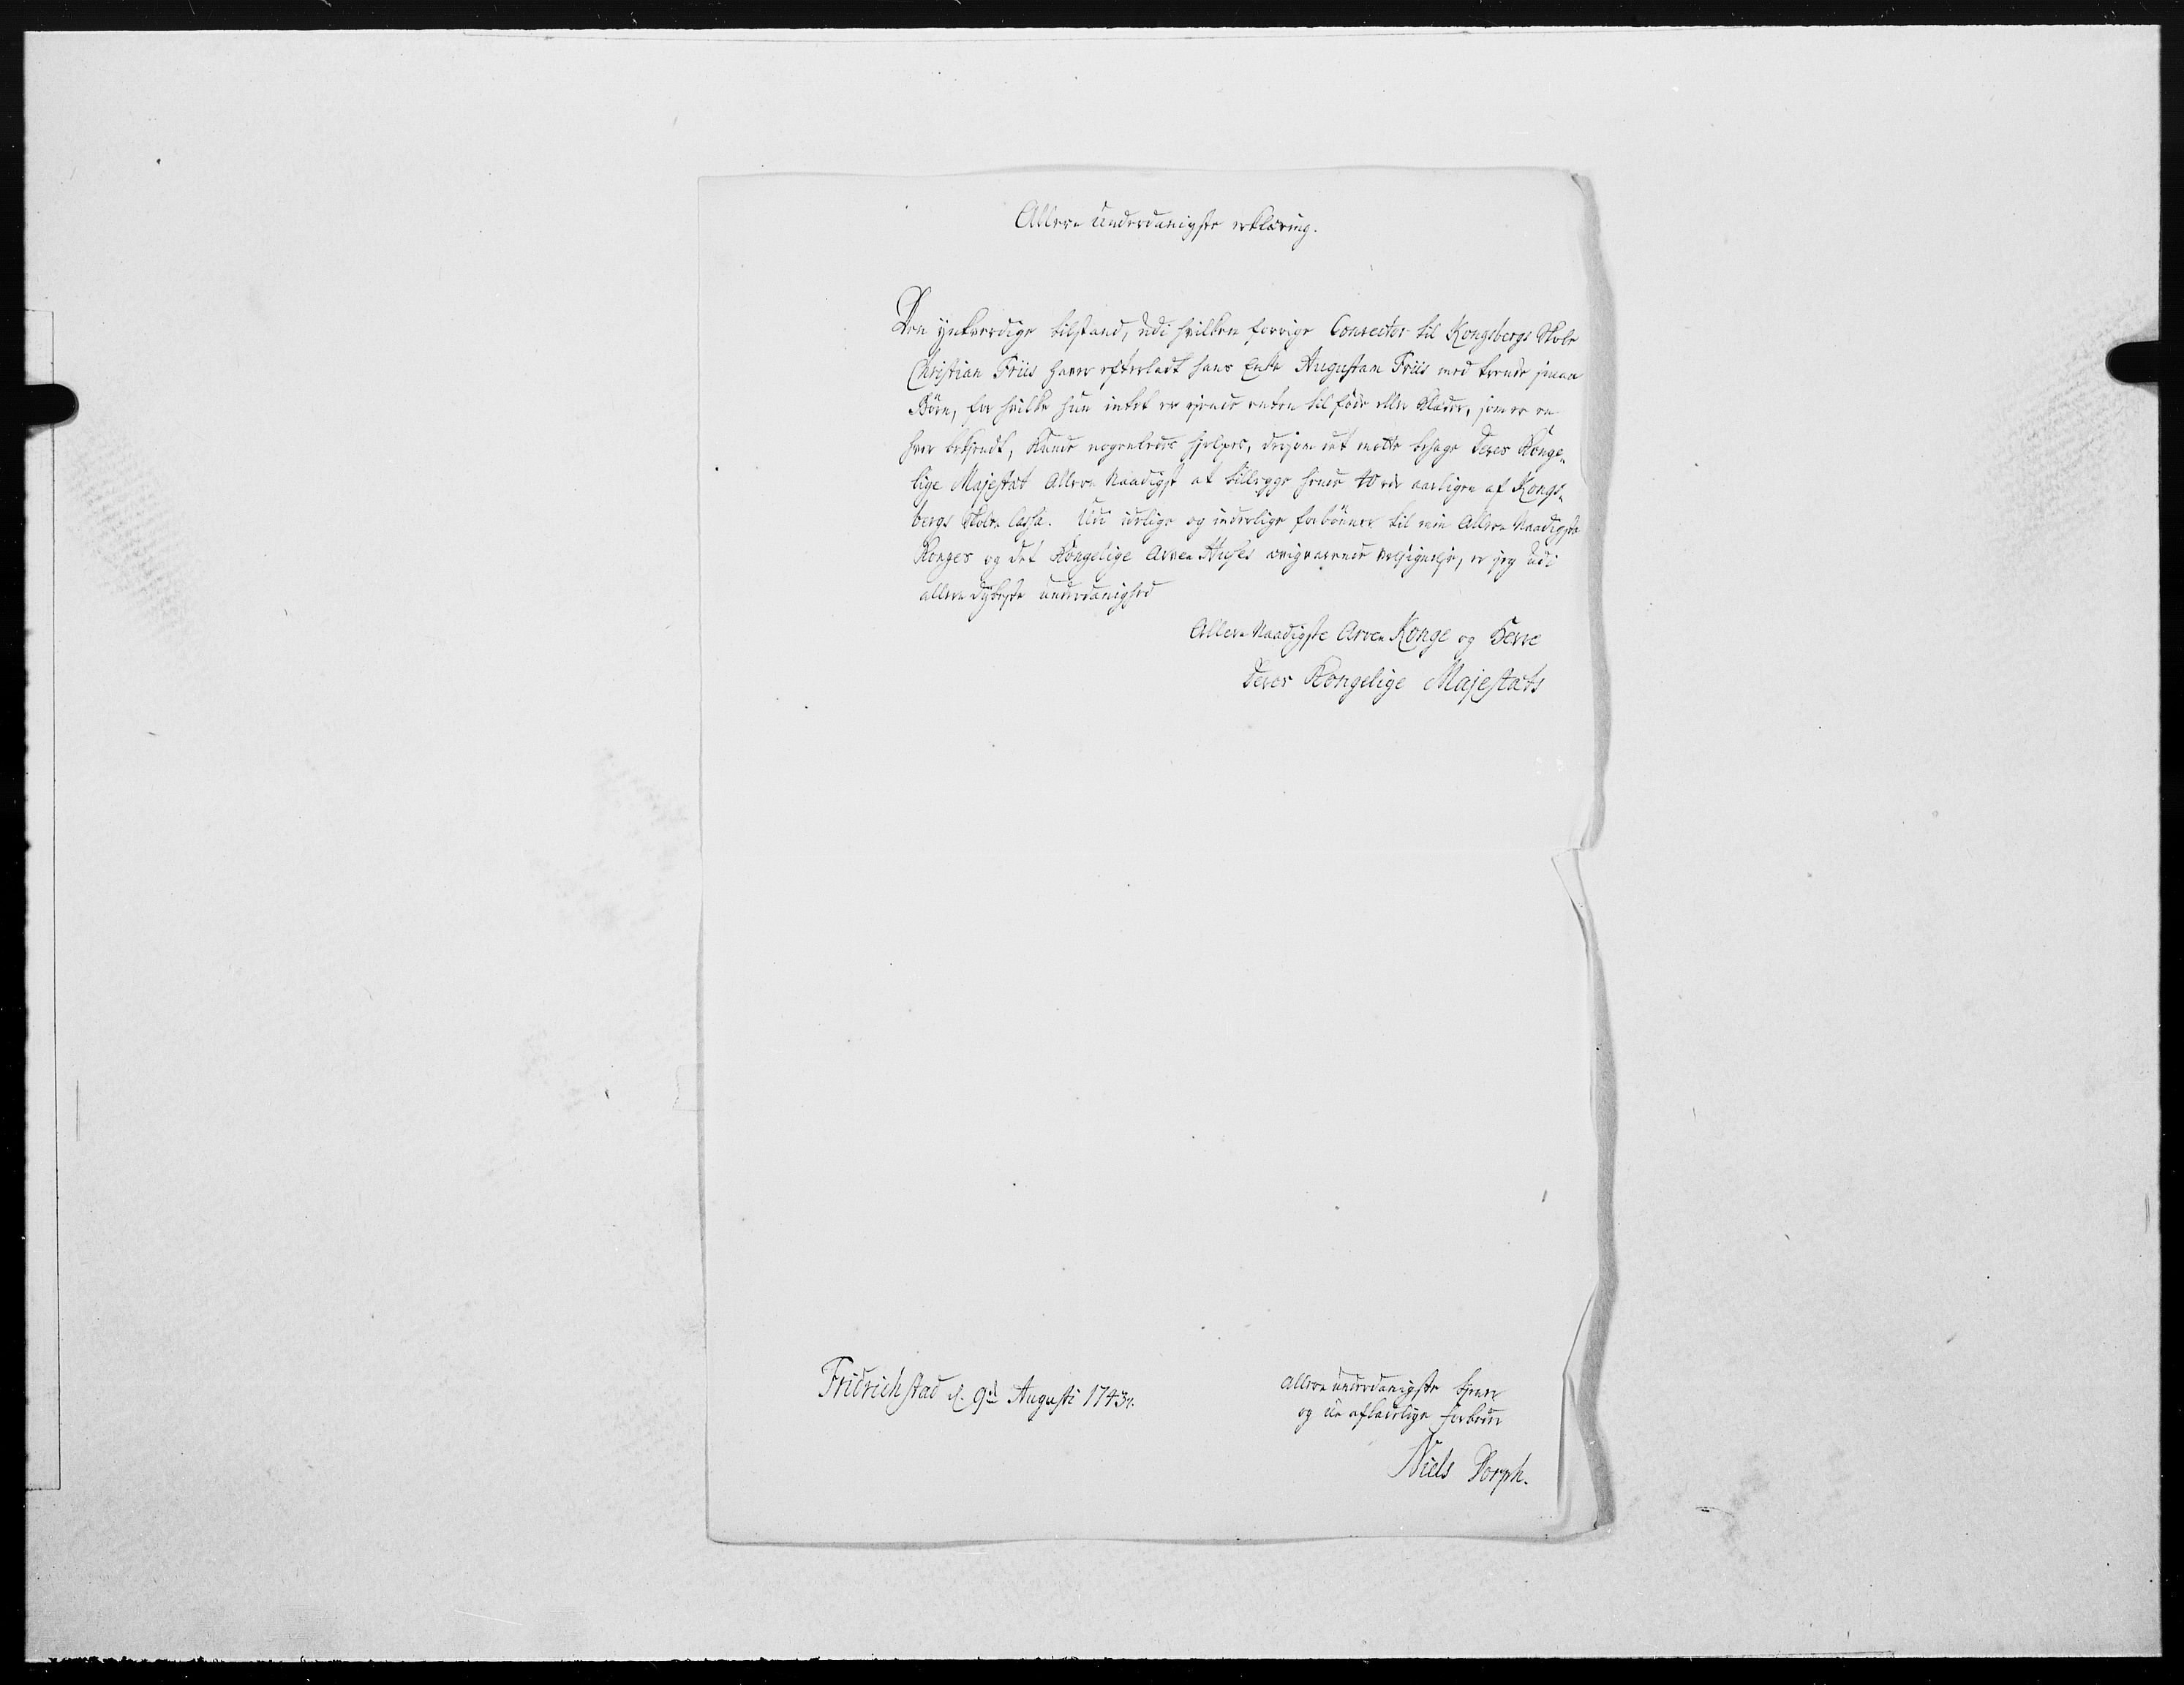 Allere underdanigste erklæring.
Den ynkverdige tilstand, udi hvilken forrige Conrector til Kongsbergs Skole
Christian Friis haver efterladt hans Enke Augustam Friis med trende smaae
Börn, for hvilke hun intet er ejende enten til föde eller klæder, som er en
hver bekjendt, kunde nogenledes hjelpes, dersom det motte behage Deres Konge„
lige Majestæt Allere Naadigst at tillegge hende 40 rdr aarligen af Kongs„
bergs Skole Cassa. Udi idelige og inderlige forbönner til min Allere Naadigste
Konges og det Kongelige Arve Huses velsignelse, er jeg udi
allere dybeste underdanighed
Allere Naadigste Arve Konge og Herre
Deres Kongelige Majestæts
Fridrichstad d. 9de Augusti 1743.
allere underdanigste tjener
og uafladelige forbeder
Niels Dorph.